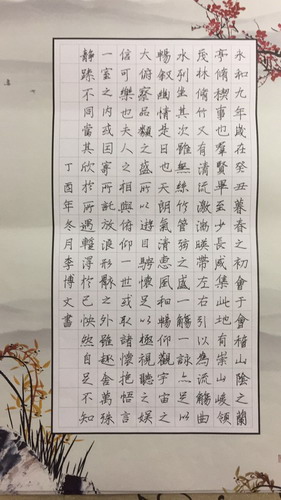 永和九年歲在癸丑暮春之初會于會稽山陰之蘭
亭脩稧事也羣賢畢至少長咸集此地有崇山峻領
茂林脩竹又有清流激湍暎帶左右引以為流觴曲
水列坐其次雖無絲竹管弦之盛一觴一詠亦足以
暢敘幽情是日也天朗氣清惠風和暢仰觀宇宙之
大俯察品類之盛所以遊目騁懷足以極視聽之娛
信可樂也夫人之相與俯仰一世或取諸懷抱悟言
一室之內或因寄所託放浪形骸之外雖趣舍萬殊
靜躁不同當其欣於所遇輒得於己怏然自足不知
丁酉年冬月李博文書